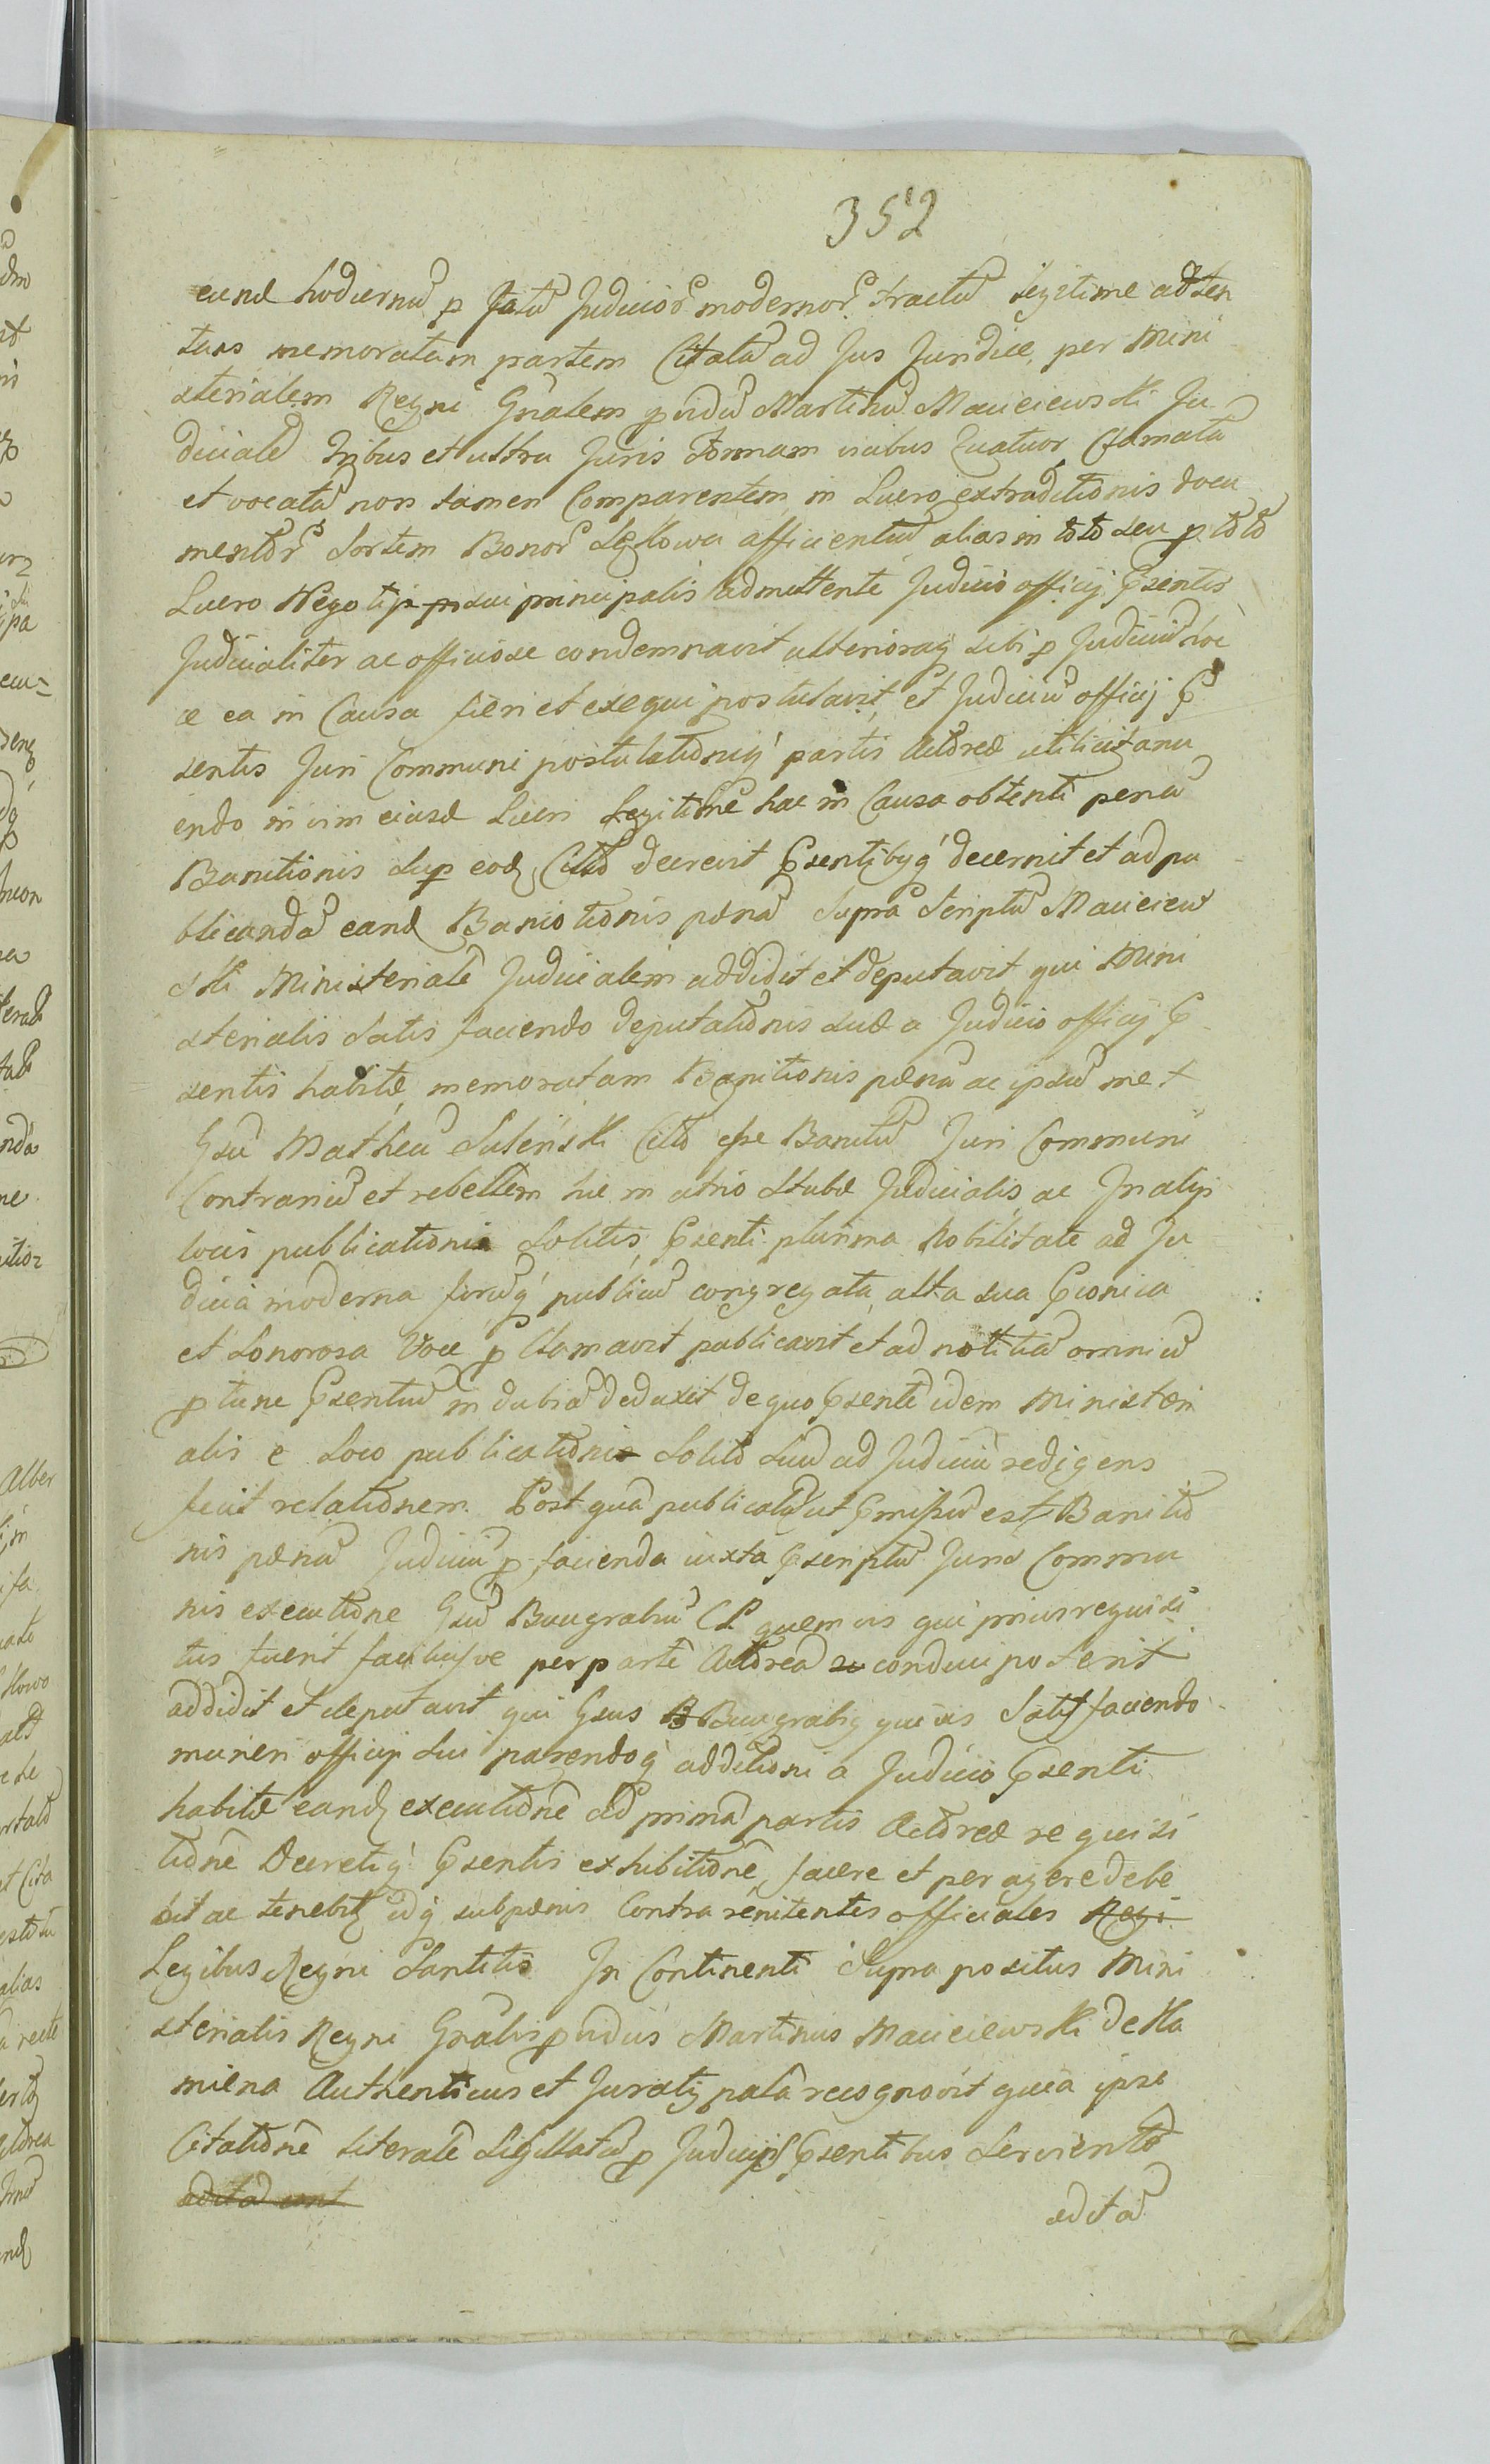 352
eund hodiernũ p Totũ Judicior modernor tractũ Legitime adten
tans memoratam partem Citatã ad Jus Juridice, per Mini
sterialem Regni Gñalem pvidũ Martinũ Macieiewski Ju
diciale Tribus et ultra Juris Formam vicibus Quatuor Clamatã
et vocatã non tamen Comparentem, in Lucro extraditionis docu
mentor Sortem Bonor afficientiũ alias in toto seu p toto
Lucro Negotij sui principalis admittente Judicio officij Psentis
Judicialiter ac officiose condemnavit ulteriorag sibi p Judiciũ hoc
ce ea in Causa fieri et exequi postulavit, et Judiciũ officij P
sentis Juri Communi postulationiq partis Actoreæ utilicitanu
endo in vim eiusd Lucri Legitime hac in Causa obtenti penã
Banitionis sup eod Citto decrevit Psentibq decernit et ad pu
blicandã eand Baniotionis pænã Supra Scriptũ Macieiew
ski Ministerialẽ Judicialem addidit et deputavit, qui Mini
sterialis Satis faciendo deputationis suæ a Judicio officij P
sentis habitæ, memoratam Banitionis pænã ac ipsũ met
Gsũ Matheũ Suleński Citto esse Banitũ Juri Communi
Contrariũ et rebellem hic in atrio Stubæ Judicialis ac In alijs
locis publicationis Solitis, Psenti plurima Nobilitate ad Ju
dicia moderna forũq publicũ congregata, alta sua Pconica
et Sonorosa Voce pclamavit publicavit et ad notitiã omniũ
ptunc Psentiũ in dubiã deduxit de quo Psente idem Ministeri
alis e Loco publicationis Solito Suũ ad Judiciũ redigens
fecit relationem. Post quã publicatã ut Pmissũ est Banitio
nis pænã Judiciũ p facienda iuxta Pscriptũ Juris Commu
nis executione Gsũ Burgrabiũ CP quem vis qui prius requisi
tus fuerit faciliusve per partẽ Actoreã conduci poterit
addidit et deputavit qui Gsus B Burgrabig quivis Satis faciendo
muneri officij sui parendoq additioni a Judicio Psenti
habitæ eand executionẽ ad primã partis Actoreæ requisi
tionẽ Decretiq Psentis exhibitionẽ, facere et peragere debe
bit ac tenebit idq sub pænis Contra renitentes officiales Regi
Legibus Regni Santitis In Continenti Supra positus Mini
sterialis Regni Gñalis pvidus Martinus Macieiewski de Ka
miena Authenticus et Juratg palã recognovit quia ipse
Citationẽ Literalẽ Sigillatã p Judicijs Psentibus Serviento
editã cont
editã